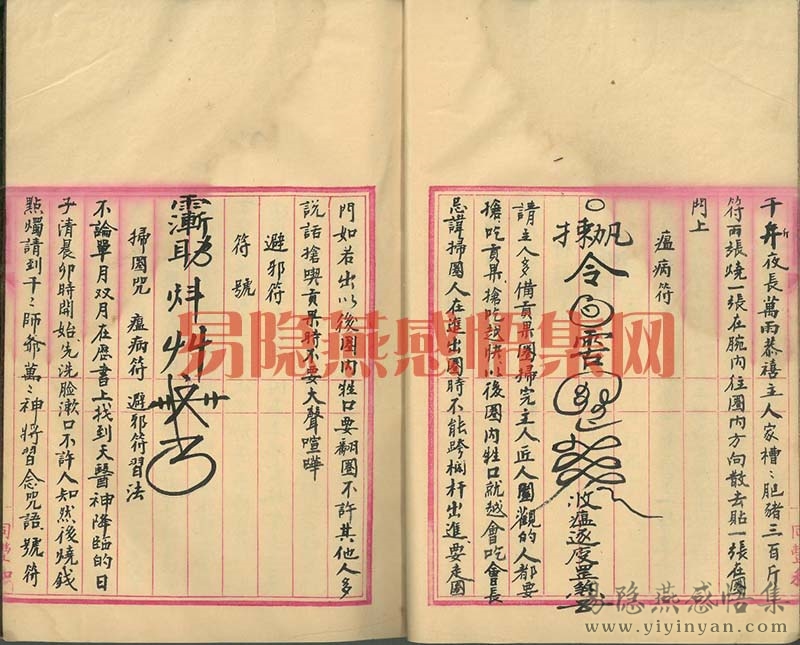 夜長萬兩恭禧主人家槽〻肥豬三百斤
符兩張燒一張在碗內往圈內方向散去貼一張在圈
門上
瘟病符
令
收瘟逐疫罡
請主人多備貢果圈掃完主人近人圍觀的人都要
搶吃貢果、搶吃越快以後圈內牲口就越會吃會長
忌諱掃圈人在進出圈時不能跨栏杆出進要走圈
門如若出以後圈內牲口要翻圈不許其他人多
說話搶喫貢果時不要大聲喧嘩
避邪符
符號
掃圈咒 瘟病符 避邪符習法
不論單月双月在曆書上找到天醫神降臨的日
子清晨卯時開始、先洗脸漱口不許人知然後燒錢
點燭請到千〻師爺萬〻神將習念咒語、號符
易隐燕感悟集网
易隐燕感悟集
www.yiyinyan.com